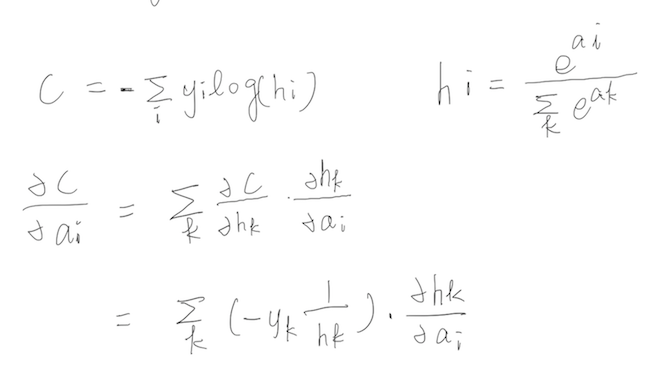 C = -∑_i y_i log(h_i)    h_i = e^{a_i} / ∑_k e^{a_k}
∂C/∂a_i = ∑_k ∂C/∂h_k · ∂h_k/∂a_i
= ∑_k (-y_k 1/h_k) · ∂h_k/∂a_i